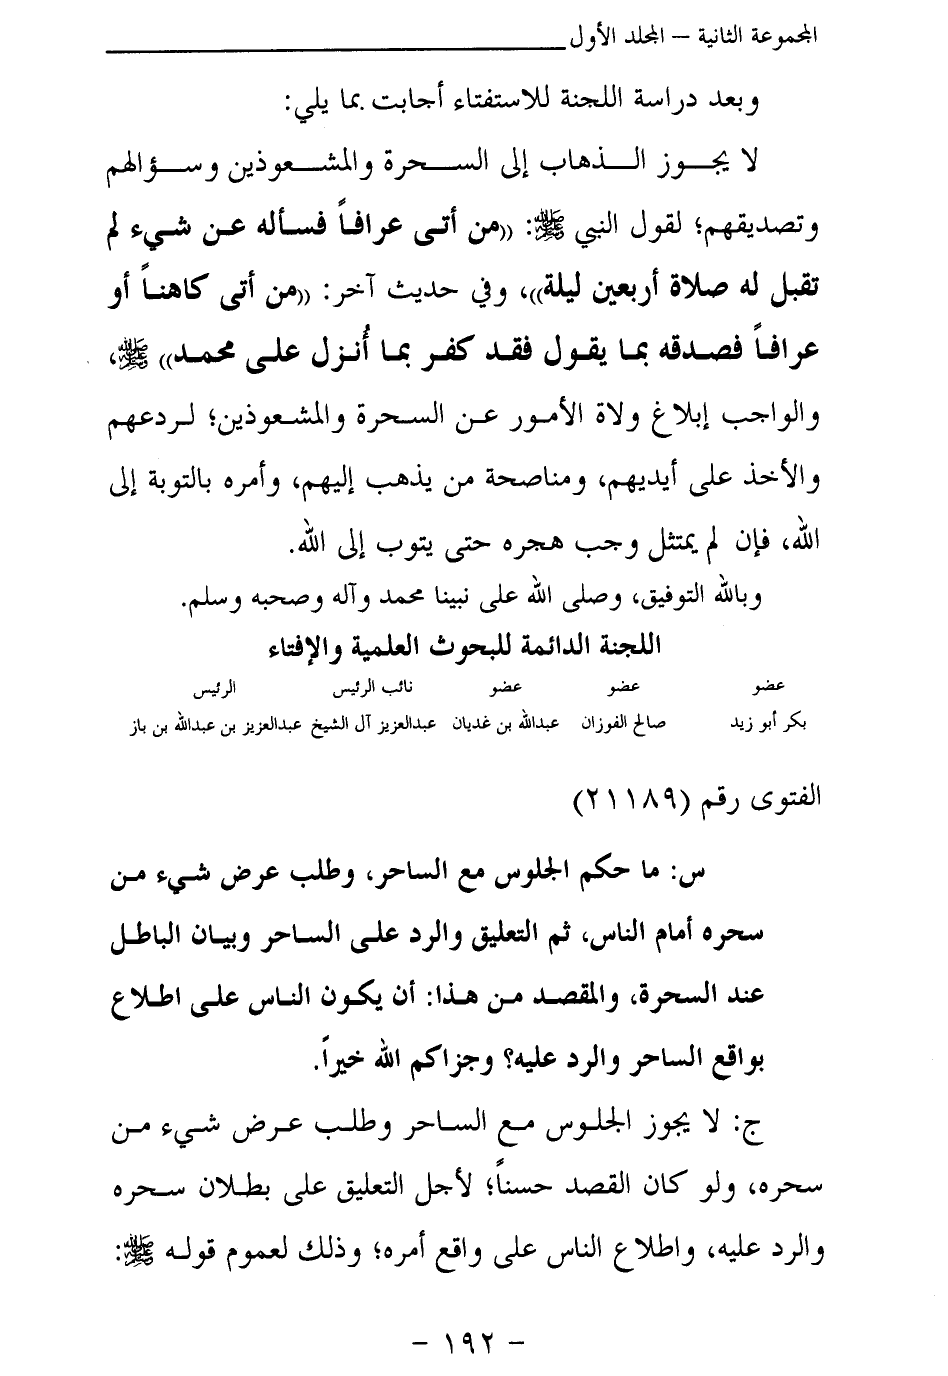 المجموعة الثانية – المجلد الأول
وبعد دراسة اللجنة للاستفتاء أجابت بما يلي:
لا يجوز الذهاب إلى السحرة والمشعوذين وسؤالهم
وتصديقهم؛ لقول النبي ﷺ: ((من أتى عرافاً فسأله عن شيء لم
تقبل له صلاة أربعين ليلة))، وفي حديث آخر: ((من أتى كاهناً أو
عرافاً فصدقه بما يقول فقد كفر بما أُنزل على محمد)) ﷺ،
والواجب إبلاغ ولاة الأمور عن السحرة والمشعوذين؛ لردعهم
والأخذ على أيديهم، ومناصحة من يذهب إليهم، وأمره بالتوبة إلى
الله، فإن لم يمتثل وجب هجره حتى يتوب إلى الله.
وبالله التوفيق، وصلى الله على نبينا محمد وآله وصحبه وسلم.
اللجنة الدائمة للبحوث العلمية والإفتاء
عضو عضو عضو نائب الرئيس الرئيس
بكر أبو زيد صالح الفوزان عبدالله بن غديان عبدالعزيز آل الشيخ عبدالعزيز بن عبدالله بن باز
الفتوى رقم (٢١١٨٩)
س: ما حكم الجلوس مع الساحر، وطلب عرض شيء من
سحره أمام الناس، ثم التعليق والرد على الساحر وبيان الباطل
عند السحرة، والمقصد من هذا: أن يكون الناس على اطلاع
بواقع الساحر والرد عليه؟ وجزاكم الله خيراً.
ج: لا يجوز الجلوس مع الساحر وطلب عرض شيء من
سحره، ولو كان القصد حسناً؛ لأجل التعليق على بطلان سحره
والرد عليه، واطلاع الناس على واقع أمره؛ وذلك لعموم قوله ﷺ:
– ١٩٢ –